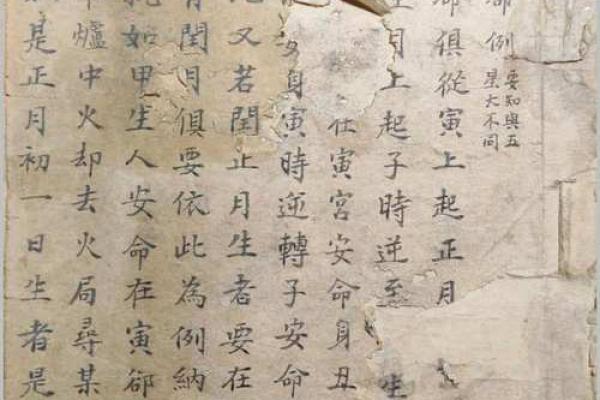 命例
要知與五
星大不同
命俱從寅上起正月
生月上起子時逆至生
在寅宮安命身丑
身寅時逆轉子安命
又若閏正月生者要在
有閏月俱要依此為例納
如甲生人安命在寅郤
爐中火却去火局尋某
是正月初一日生者是